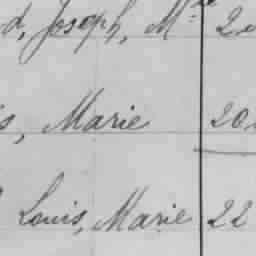 d, Joseph, Mre 20
s, Marie 20
Louis, Marie 22